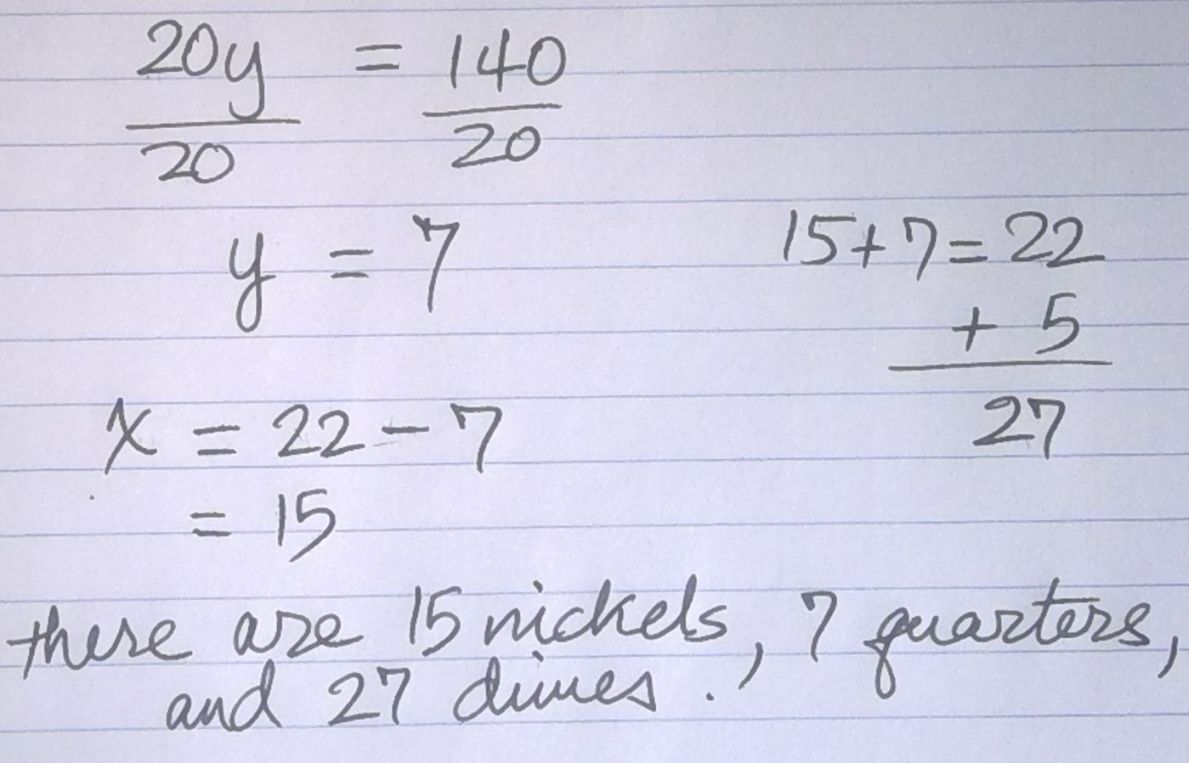 20y = 140
20 20
y = 7
15+7=22
+ 5
27
x = 22-7
= 15
there are 15 nickels, 7 quarters,
and 27 dimes.